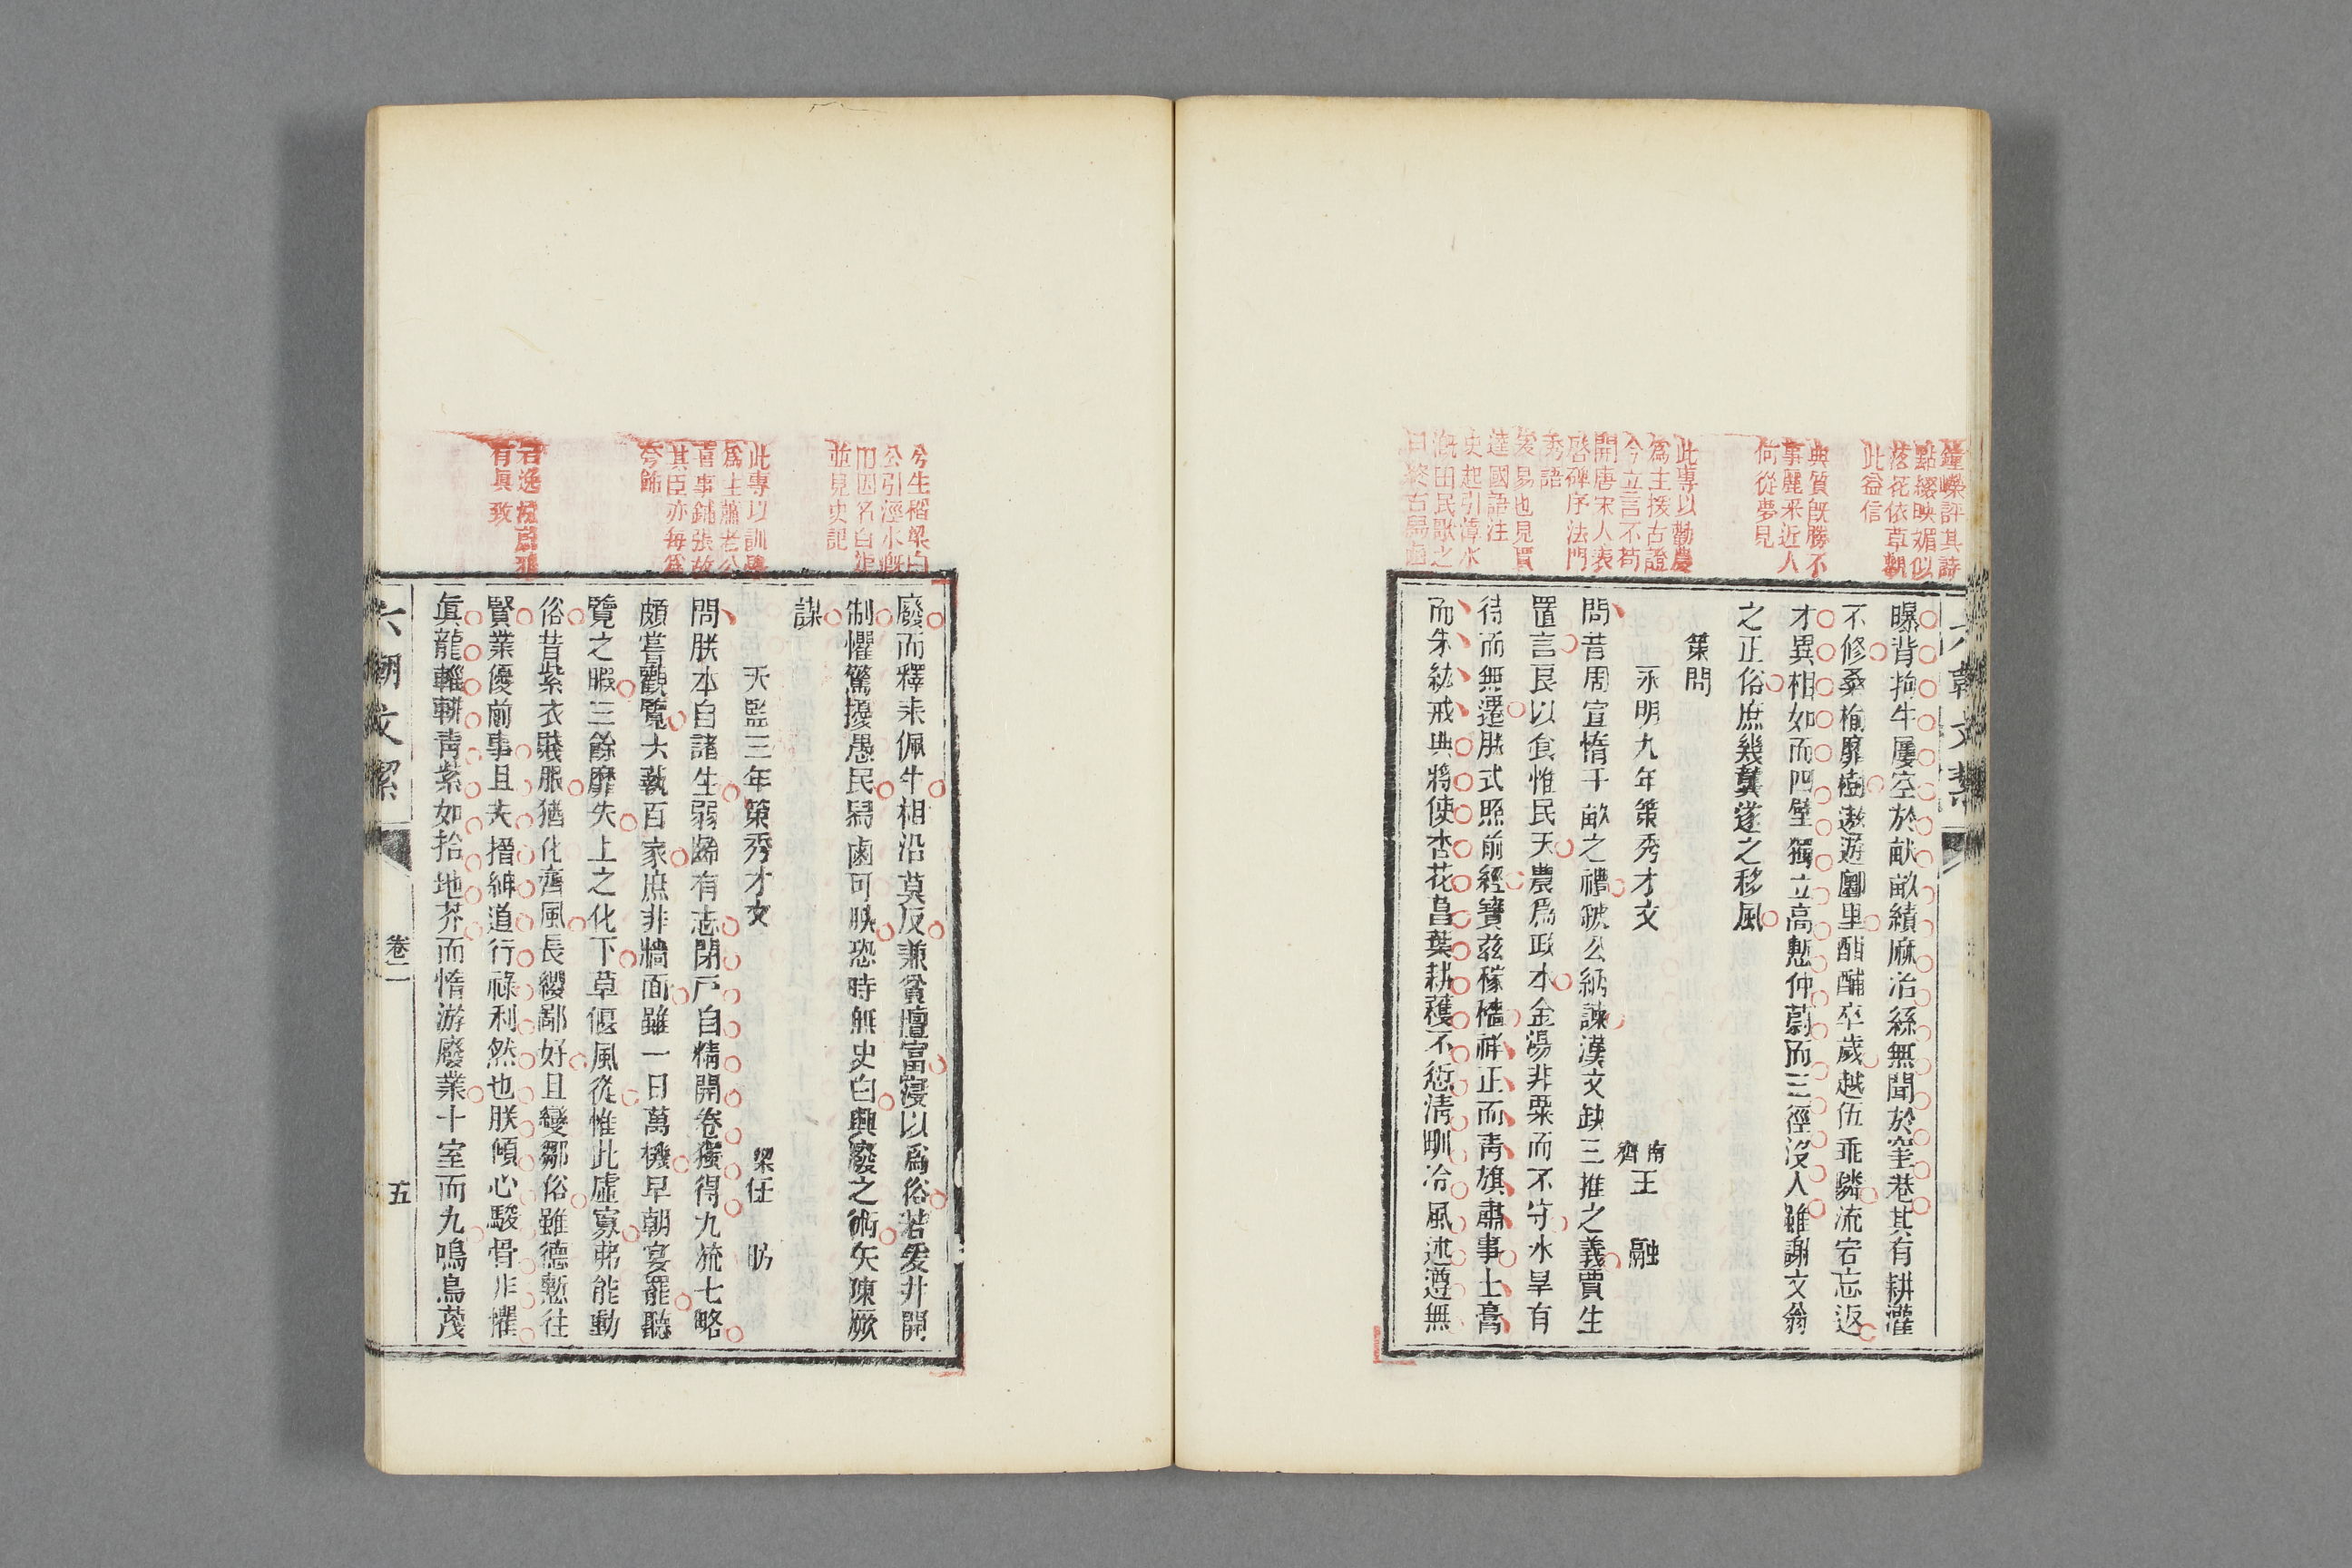 鐘嶸評其詩
點綴映媚似
落花依草觀
此益信
典質旣勝不
事麗采近人
何從夢見
此專以勸農
爲主援古證
今立言不苟
開唐宋人表
啓碑序法門
秀語
爰易也見賈
逵國語注
史起引漳水
漑田民歌之
曰終古舄鹵
曝背拘牛屢空於畎畝績麻治絲無聞於窐巷其有耕灌
不修桑榆靡樹遨遊鄽里酣酺卒歲越伍乖鄰流宕忘返
才異相如而四壁獨立高慙仲蔚而三徑沒人雖謝文翁
之正俗庶幾龔遂之移風
策問
永明九年策秀才文 南齊王 融
問昔周宣惰千畝之禮虢公納諫漢文缺三推之義賈生
置言良以食惟民天農爲政本金湯非粟而不守水旱有
待而無遷朕式照前經寶兹稼穡祥正而靑旗肅事土膏
而朱紘戒典將使杏花菖葉耕穫不愆淸甽泠風述遵無
兮生稻粱白
公引涇水漑
田因名白渠
並見史記
此專以訓學
爲主蕭老公
喜事鋪張故
其臣亦每爲
夸飾
有眞致
廢而釋耒佩牛相沿莫反兼貧擅富寖以爲俗若爰井開
制懼驚擾愚民舄鹵可腴恐時無史白興廢之術矢陳厥
謀
天監三年策秀才文 梁任 昉
問朕本自諸生弱齡有志閉戶自精開卷獨得九流七略
頗嘗觀覽六藝百家庶非牆面雖一日萬機早朝宴罷聽
覽之暇三餘靡失上之化下草偃風從惟此虛寡弗能動
俗昔紫衣賤服猶化齊風長纓鄙好且變鄒俗雖德慙往
賢業優前事且夫搢紳道行祿利然也朕傾心駿骨非懼
眞龍輜軿靑紫如拾地芥而惰游廢業十室而九鳴鳥蔑
六朝文絜 卷二 五